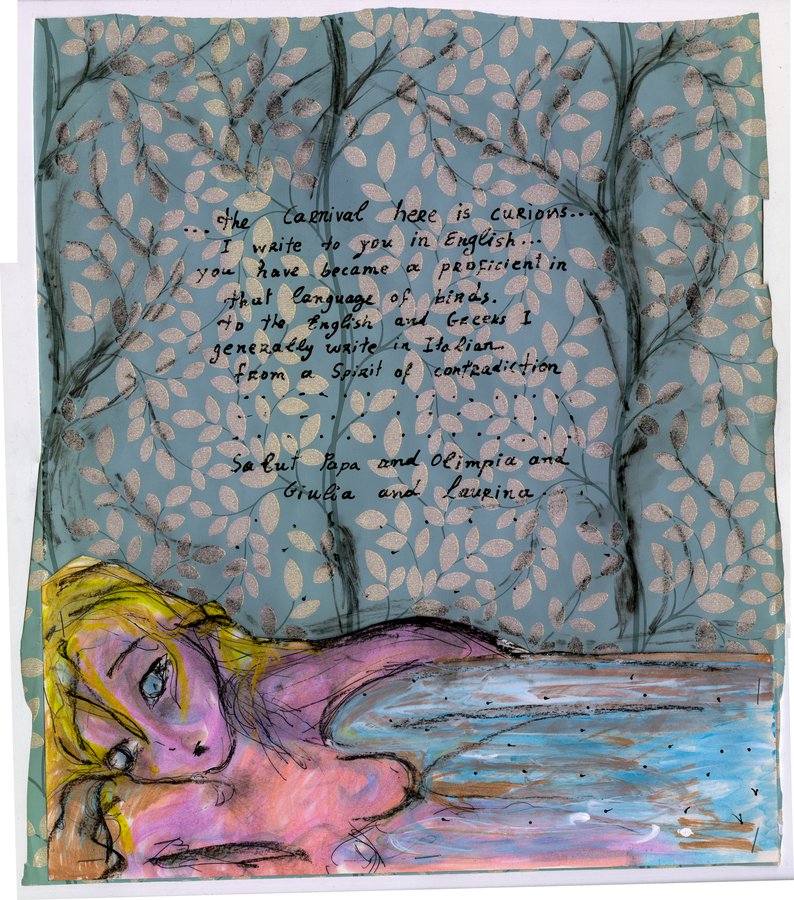 ... the Carnival here is curious...
I write to you in English...
you have became a proficient in
that language of birds.
to the English and Greeks I
generally write in Italian..
from a Spirit of contradiction
Salut Papa and Olimpia and
Giulia and Laurina